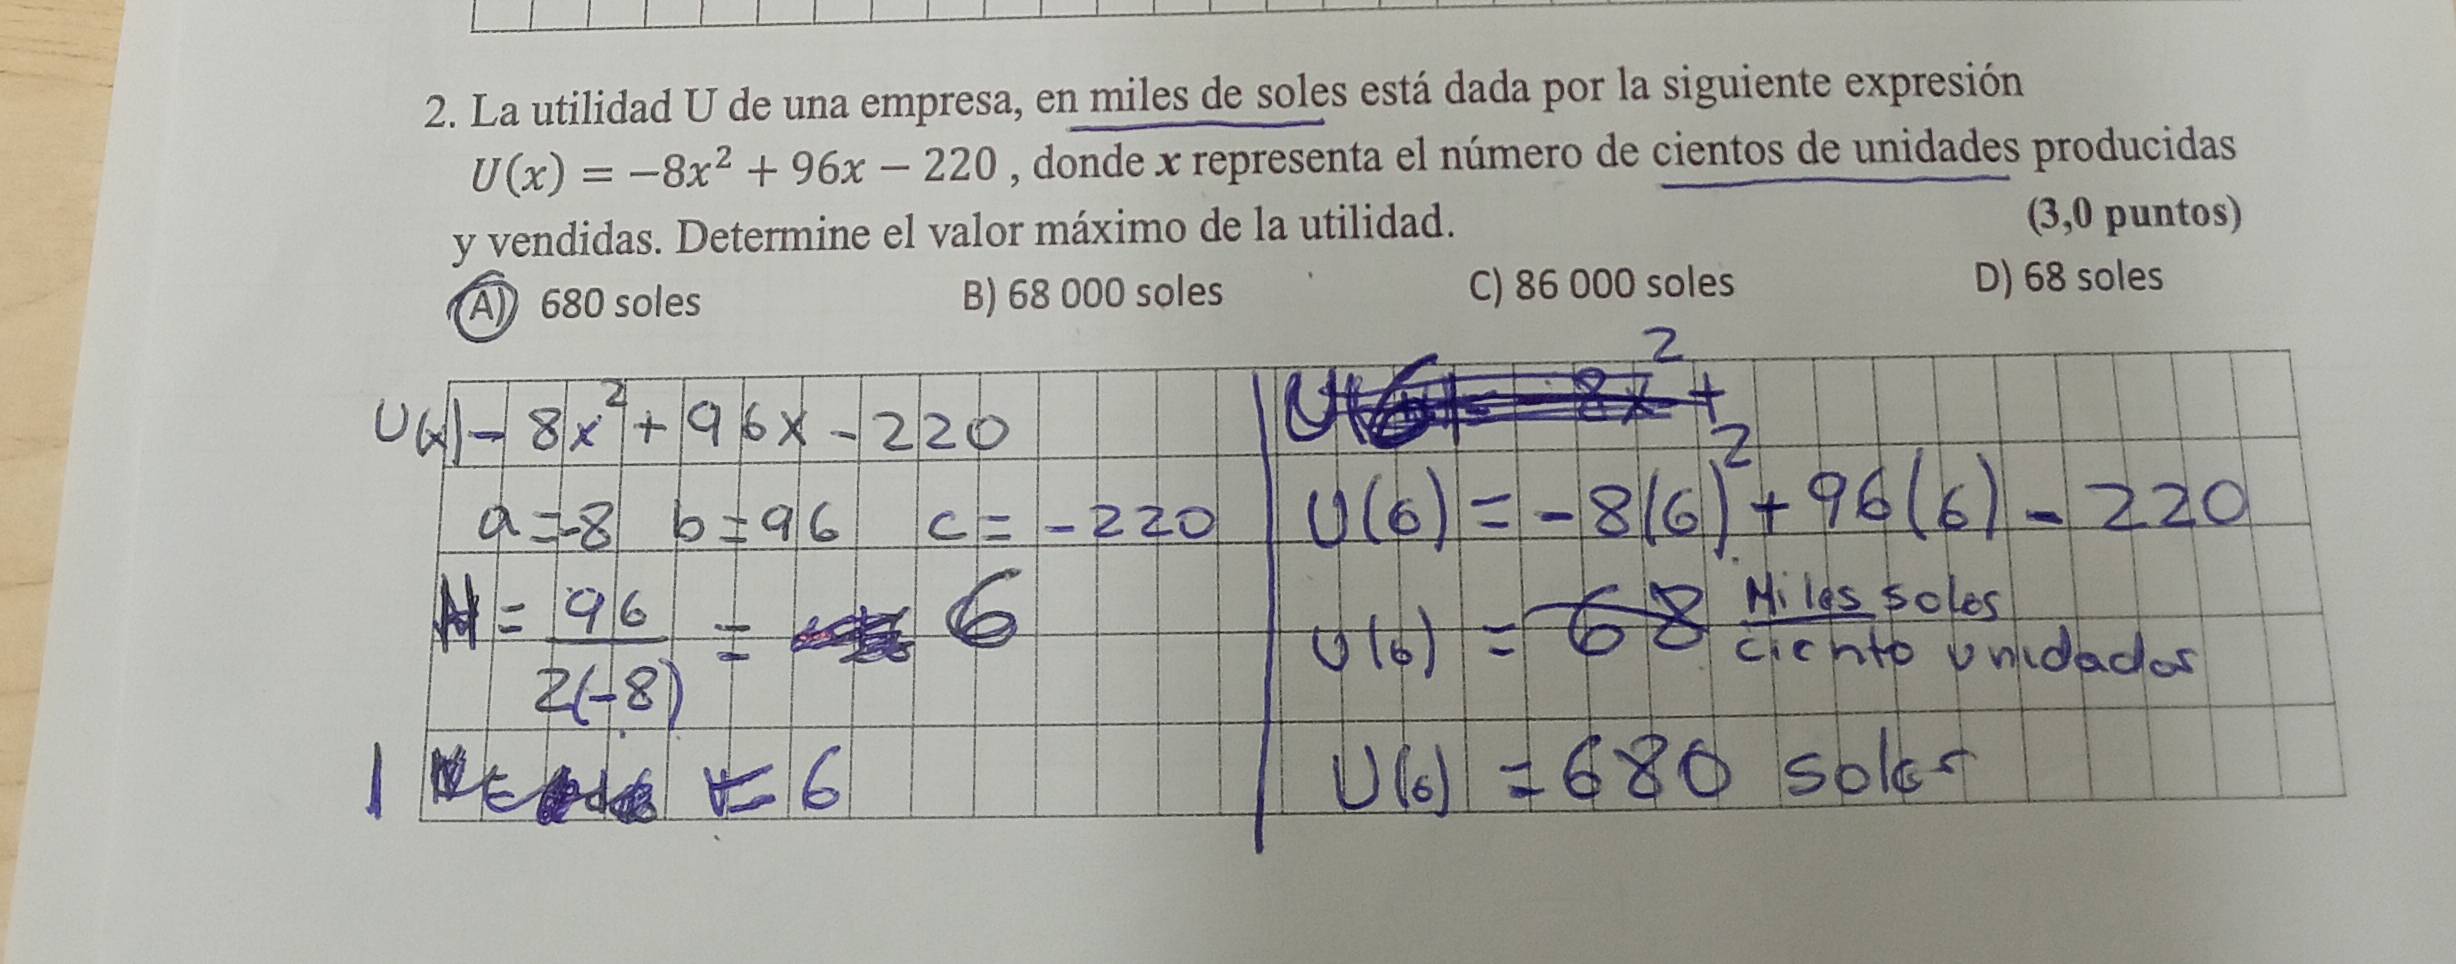 2. La utilidad U de una empresa, en miles de soles está dada por la siguiente expresión
U(x) = −8x² + 96x − 220 , donde x representa el número de cientos de unidades producidas
y vendidas. Determine el valor máximo de la utilidad.
(3,0 puntos)
A) 680 soles B) 68 000 soles C) 86 000 soles D) 68 soles
U(x) - 8x² + 96x - 220
a = -8 b = 96 c = -220
= 96 / 2(-8) = 6
= 6
U(6) = -8(6)² + 96(6) - 220
U(6) = 68 Miles soles / ciento unidades
U(6) = 680 soles